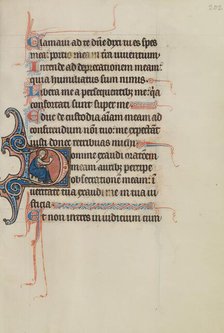 202
Clamaui ad te dñe dixi tu es spes
mea: portio mea in terra uiuentium
Intende ad deprecationem meam:
quia humiliatus sum nimis.
Libera me a persequentibus me: quia
confortati sunt super me
Educ de custodia animam meam ad
confitendum nomini tuo: me expectant
iusti donec retribuas michi
Domine exaudi orationem
meam auribus percipe
obsecrationem meam: in
ueritate tua exaudi me in tua iu
sticia
Et non intres in iudicium cum